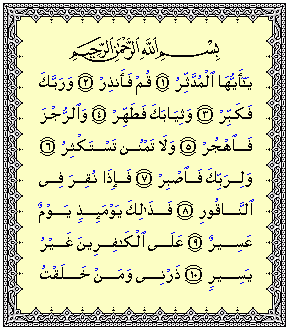 بِسْمِ ٱللَّهِ ٱلرَّحْمَٰنِ ٱلرَّحِيمِ
يَٰٓأَيُّهَا ٱلْمُدَّثِّرُ ١ قُمْ فَأَنذِرْ ٢ وَرَبَّكَ
فَكَبِّرْ ٣ وَثِيَابَكَ فَطَهِّرْ ٤ وَٱلرُّجْزَ
فَٱهْجُرْ ٥ وَلَا تَمْنُن تَسْتَكْثِرُ ٦
وَلِرَبِّكَ فَٱصْبِرْ ٧ فَإِذَا نُقِرَ فِى
ٱلنَّاقُورِ ٨ فَذَٰلِكَ يَوْمَئِذٍ يَوْمٌ
عَسِيرٌ ٩ عَلَى ٱلْكَٰفِرِينَ غَيْرُ
يَسِيرٍ ١٠ ذَرْنِى وَمَنْ خَلَقْتُ